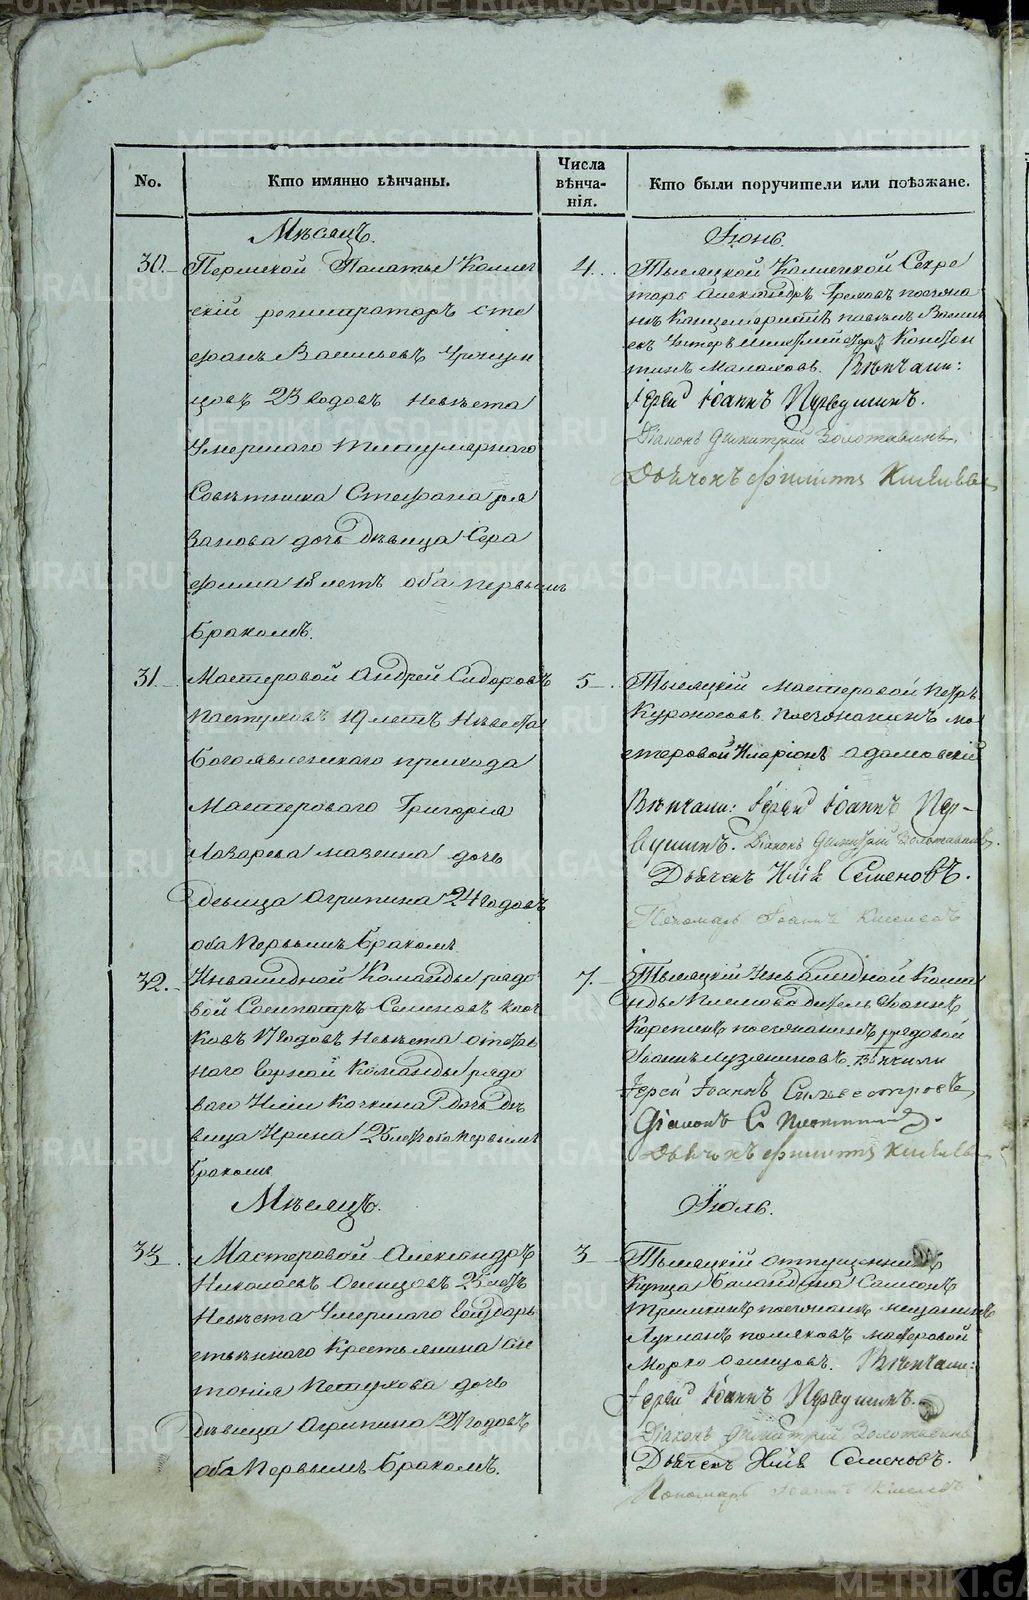 No.
Кто имянно вѣнчаны.
Числа
вѣнча-
нія.
Кто были поручители или поѣзжане.
Мѣсяцъ.
Іюнь.
30.
Пермской Палаты Коллеж
скій регистраторъ Сте
фанъ Васильевъ
цовъ 23 годовъ Невѣста
Умершаго Титулярнаго
Совѣтника Стефана
занова дочь дѣвица Сера
фима 18 летъ оба первымъ
Бракомъ.
4.
Тысяцкой Коллежской Секре
тарь Александръ Громовъ поезжа
нѣ Канцеляристъ
Констан
тинъ Малаховъ. Вѣнчали:
Іерей Іоаннъ Первушинъ.
Діаконъ Димитрій Золотавинъ.
Дьячекъ Филиппъ Киселевъ
31.
Мастеровой Андрей Сидоровъ
Пастуховъ 19 летъ Невеста
Богоявленскаго прихода
Мастероваго Григорія
Лазарева Мазеина дочь
девица Агрипина 24 годовъ
оба Первымъ Бракомъ
5
Тысяцкій мастеровой Петръ
Курносовъ поезжанинъ ма
стеровой Иларіонъ Адамовскій
Вѣнчали: Іерей Іоаннъ Пер-
вушинъ. Діаконъ Димитрій Золотавинъ.
Дьячекъ Илія Семеновъ.
Пономарь Іоаннъ Киселевъ
32.
Инвалидной Команды рядо
вой Сосипатръ Семеновъ
ковъ 17 годовъ Невѣста
наго Горной Команды рядо
ваго Иліи Кочкина дочь дѣ
вица Ирина 25 летъ оба первымъ
бракомъ
7.
Тысяцкій Инвалидной Коман
ды Іоаннъ
Корепинъ поезжанинъ рядовой
Іоаннъ Лузяниновъ. Вѣнчали
Іерей Іоаннъ Сильвестровъ
Діаконъ С.
Дьячекъ Филиппъ Киселевъ
Мѣсяцъ.
Іюль.
33.
Мастеровой Александръ
Николаевъ Оленцовъ 23 летъ
Невѣста Умершаго Государ
ственнаго Крестьянина Ан
тонія Петухова дочь
Дѣвица Агрипина 27 годовъ
оба Первымъ Бракомъ.
3
Тысяцкій отпущенникъ
Купца Баландина Самсонъ
поезжанѣ мещанинъ
Лукианъ Поляковъ мастеровой
Марко Оленцовъ. Вѣнчали:
Іерей Іоаннъ Первушинъ.
Діаконъ Димитрій Золотавинъ
Дьячекъ Илія Семеновъ.
Пономарь Іоаннъ Киселевъ
METRIKI.GASO-URAL.RU